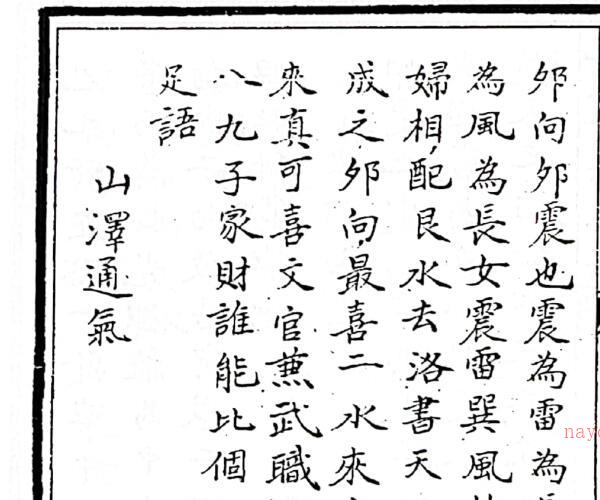 夘向夘震也震為雷為
為風為長女震雷巽風
婦相配艮水去洛書天
成之夘向最喜二水來
來真可喜文官兼武職
八九子家財誰能比個
足語
山澤通氣